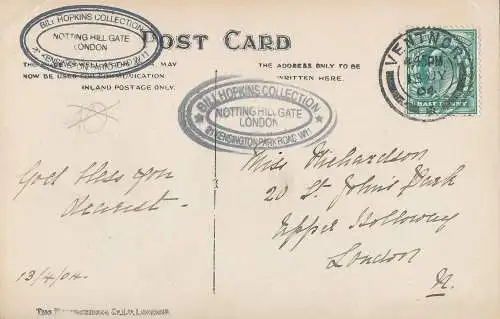 BILL HOPKINS COLLECTION
NOTTING HILL GATE
LONDON
KENSINGTON PARK ROAD W11
POST CARD
MAY
NOW BE USED FOR COMMUNICATION
INLAND POSTAGE ONLY.
THE ADDRESS ONLY TO BE
WRITTEN HERE.
BILL HOPKINS COLLECTION
NOTTING HILL GATE
LONDON
KENSINGTON PARK ROAD W11
VENTNOR
PM
04
HALFPENNY
God bless you
dearest.
13/4/04.
Miss Richardson
20 St. John's Park
Upper Holloway
London
N.